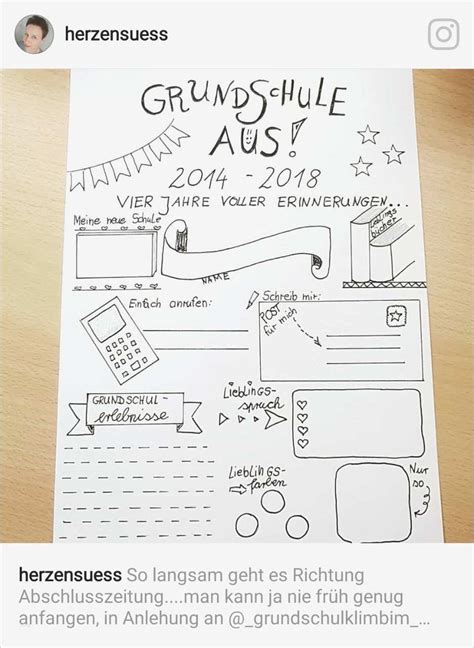 herzensuess
GRUNDSCHULE
AUS!
2014 - 2018
VIER JAHRE VOLLER ERINNERUNGEN...
Meine neue Schule
NAME
Lieblings
bücher
Einfach anrufen:
Schreib mir:
POST
für mich
GRUNDSCHUL-
erlebnisse
LiEBLiNGS-
spruch
LiEBLiNGS-
farben
Nur
so
herzensuess So langsam geht es Richtung
Abschlusszeitung....man kann ja nie früh genug
anfangen, in Anlehung an @_grundschulklimbim_...